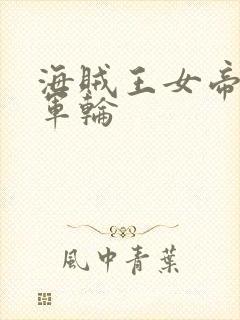 海賊王女帝
軍輪
風中青葉